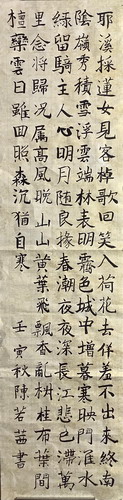 耶溪採蓮女見客棹歌回笑入荷花去佯羞不出來終南
陰嶺秀積雪浮雲端林表明霽色城中增暮寒映門淮水
綠留騎主人心明月隨良掾春潮夜夜深長江悲已滯萬
里念將歸況屬高風晚山山黃葉飛飄香亂椒桂布葉間
檀欒雲日雖回照森沉猶自寒 壬寅秋陳若茜書